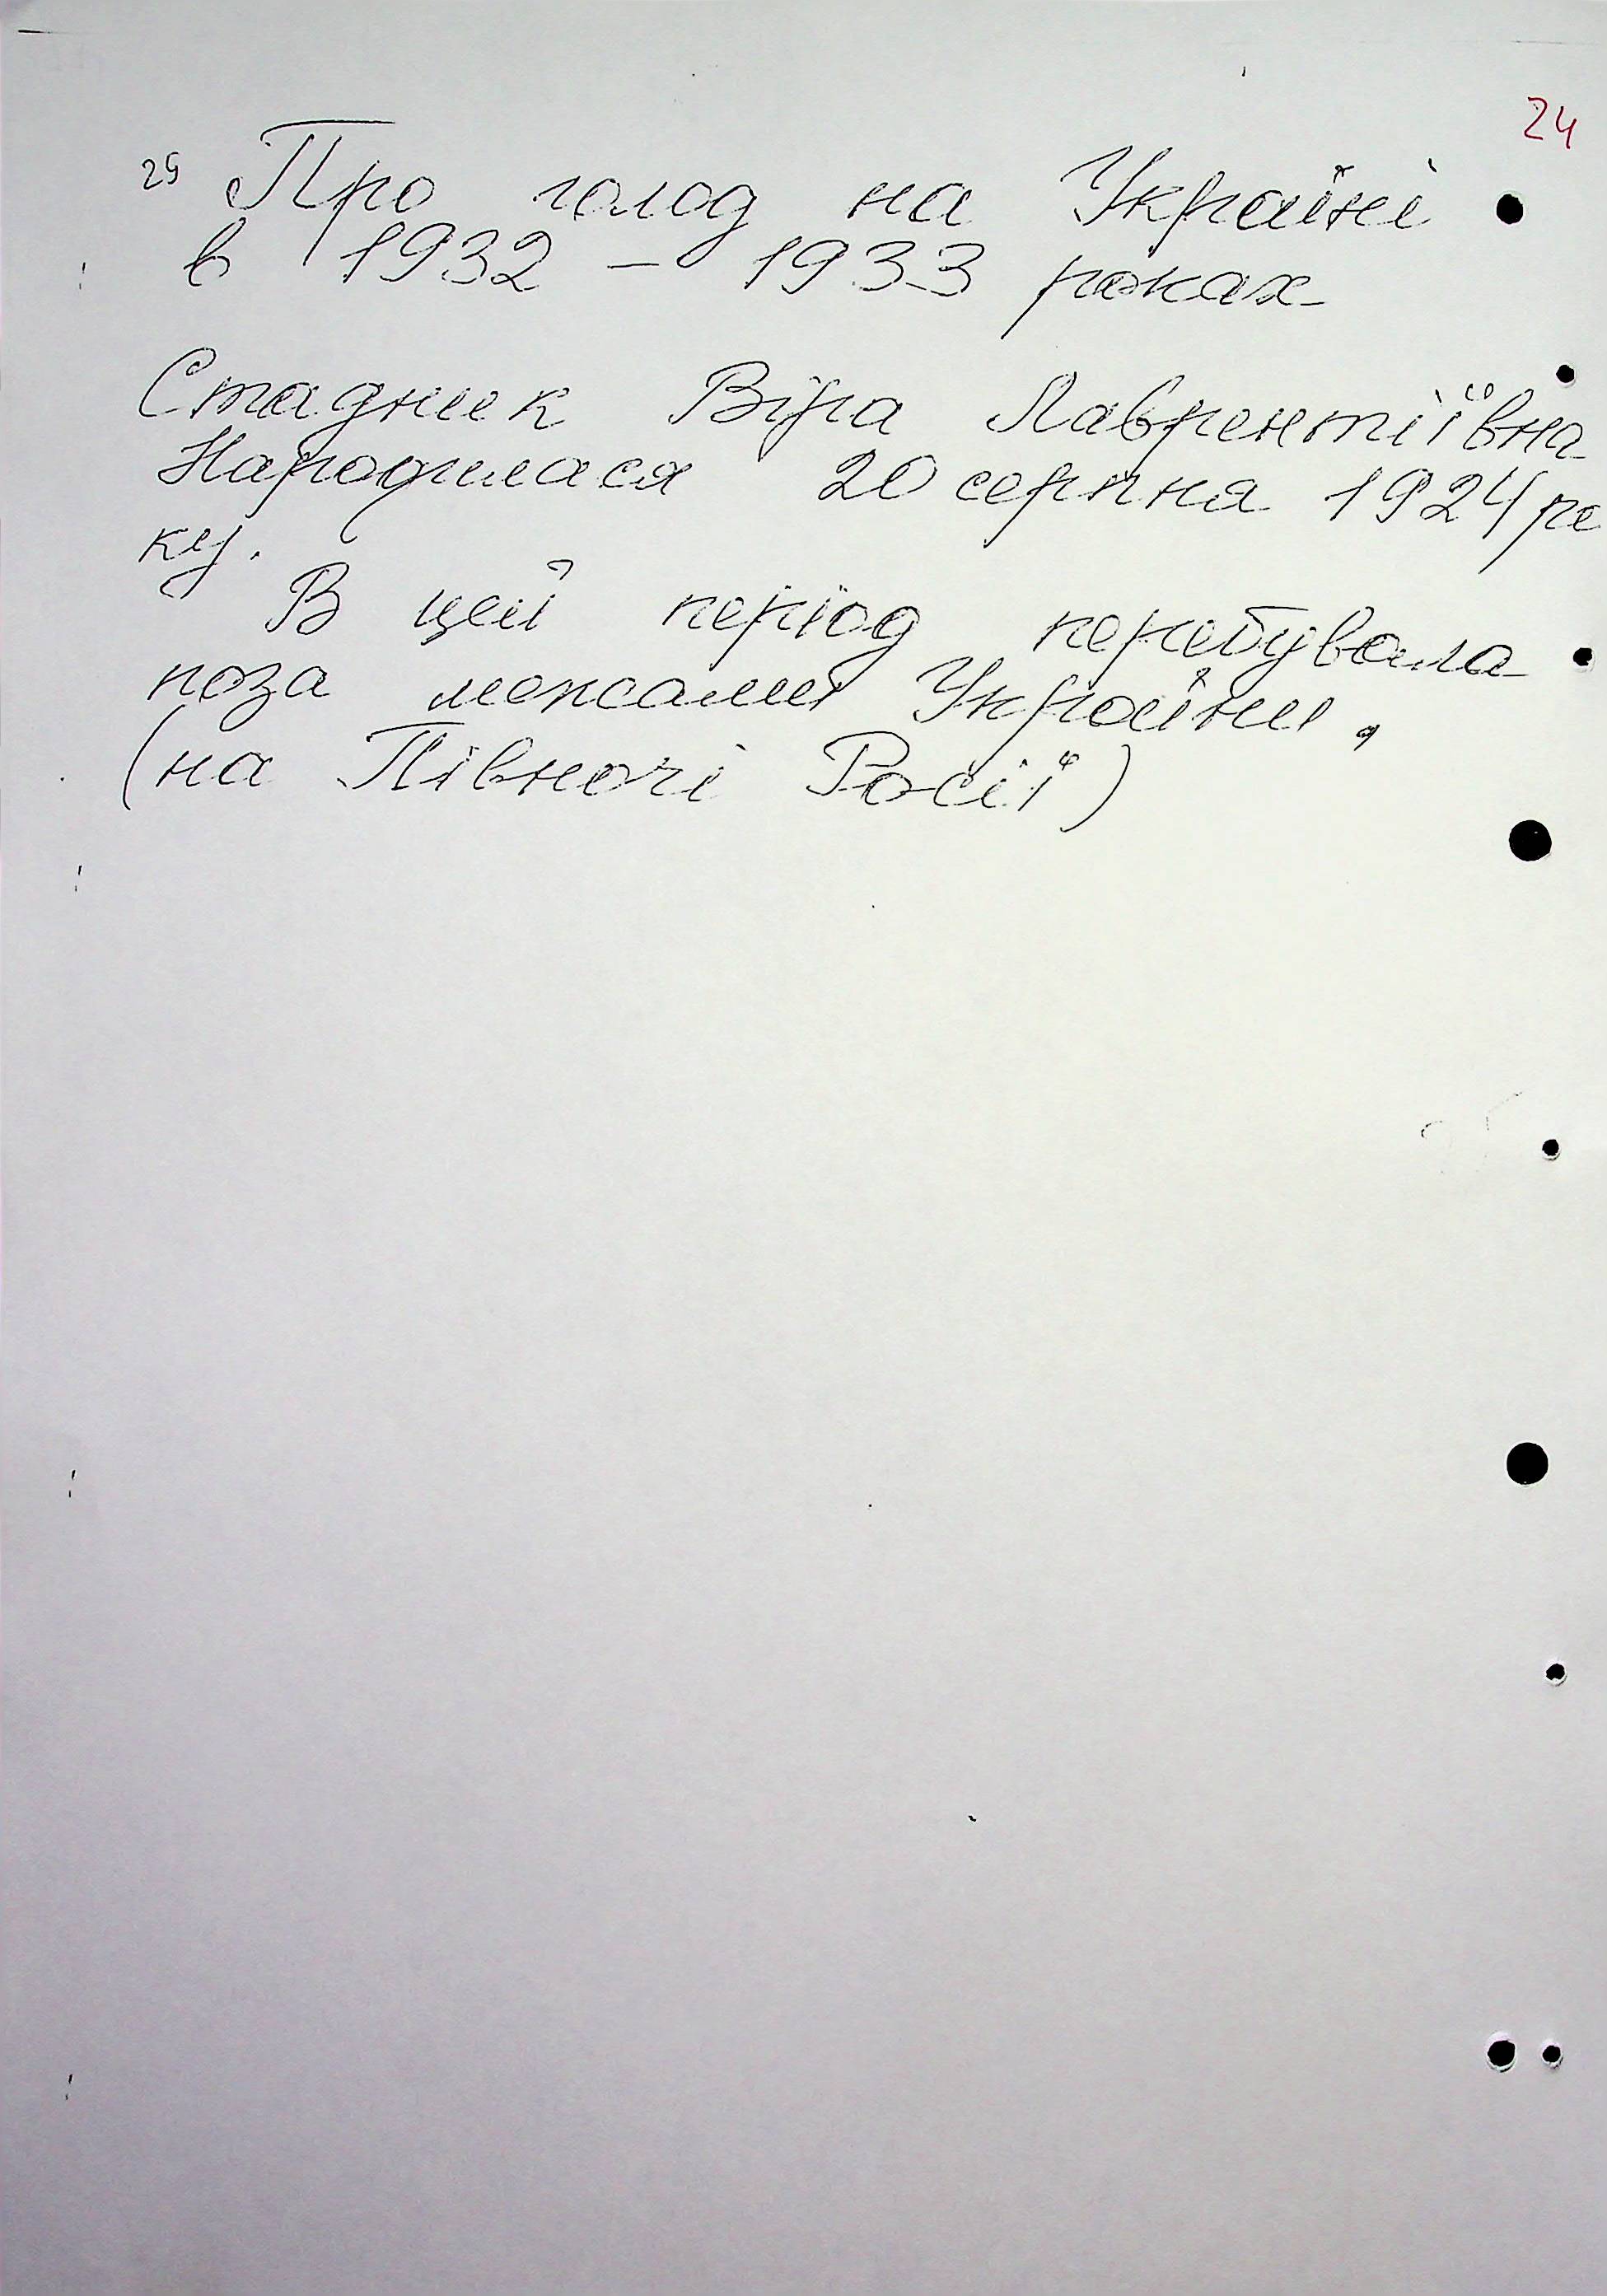 24
25 Про голод на Україні
в 1932 – 1933 роках
Стадник Віра Лаврентіївна
Народилася 20 серпня 1924 ро
ку.
В цей період перебувала
поза межами України,
(на Півночі Росії)